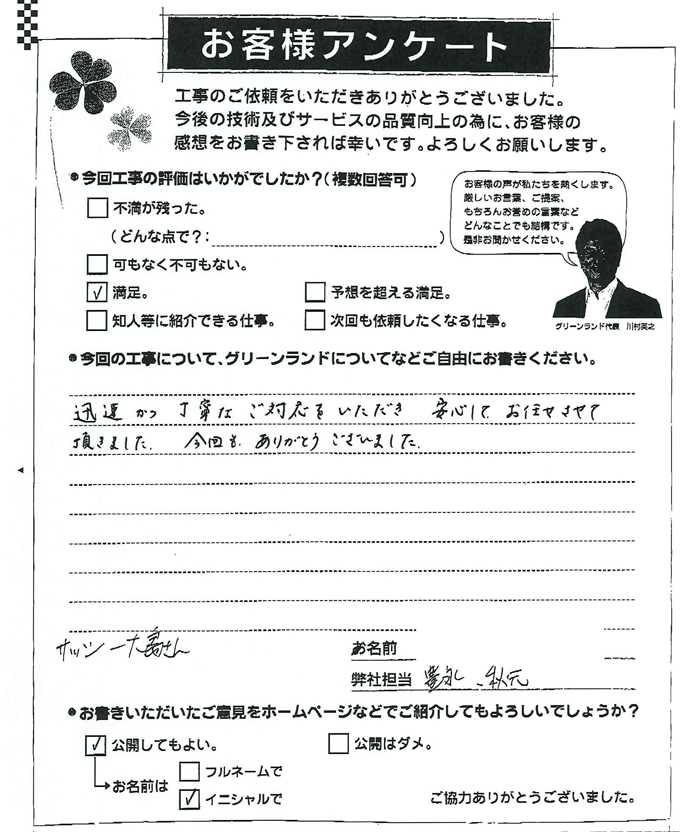 お客様アンケート
工事のご依頼をいただきありがとうございました。
今後の技術及びサービスの品質向上の為に、お客様の
感想をお書き下されば幸いです。よろしくお願いします。
今回工事の評価はいかがでしたか？(複数回答可)
不満が残った。
(どんな点で？: )
可もなく不可もない。
✓ 満足。
予想を超える満足。
知人等に紹介できる仕事。
次回も依頼したくなる仕事。
お客様の声が私たちを熱くします。
厳しいお言葉、ご提案、
もちろんお誉めの言葉など
どんなことでも結構です。
是非お聞かせください。
グリーンランド代表 川村英之
今回の工事について、グリーンランドについてなどご自由にお書きください。
迅速かつ丁寧なご対応をいただき 安心して お任せさせて
頂きました. 今回も ありがとうございました.
お名前
弊社担当 秋元
お書きいただいたご意見をホームページなどでご紹介してもよろしいでしょうか？
✓ 公開してもよい。
公開はダメ。
お名前は
フルネームで
✓ イニシャルで
ご協力ありがとうございました。